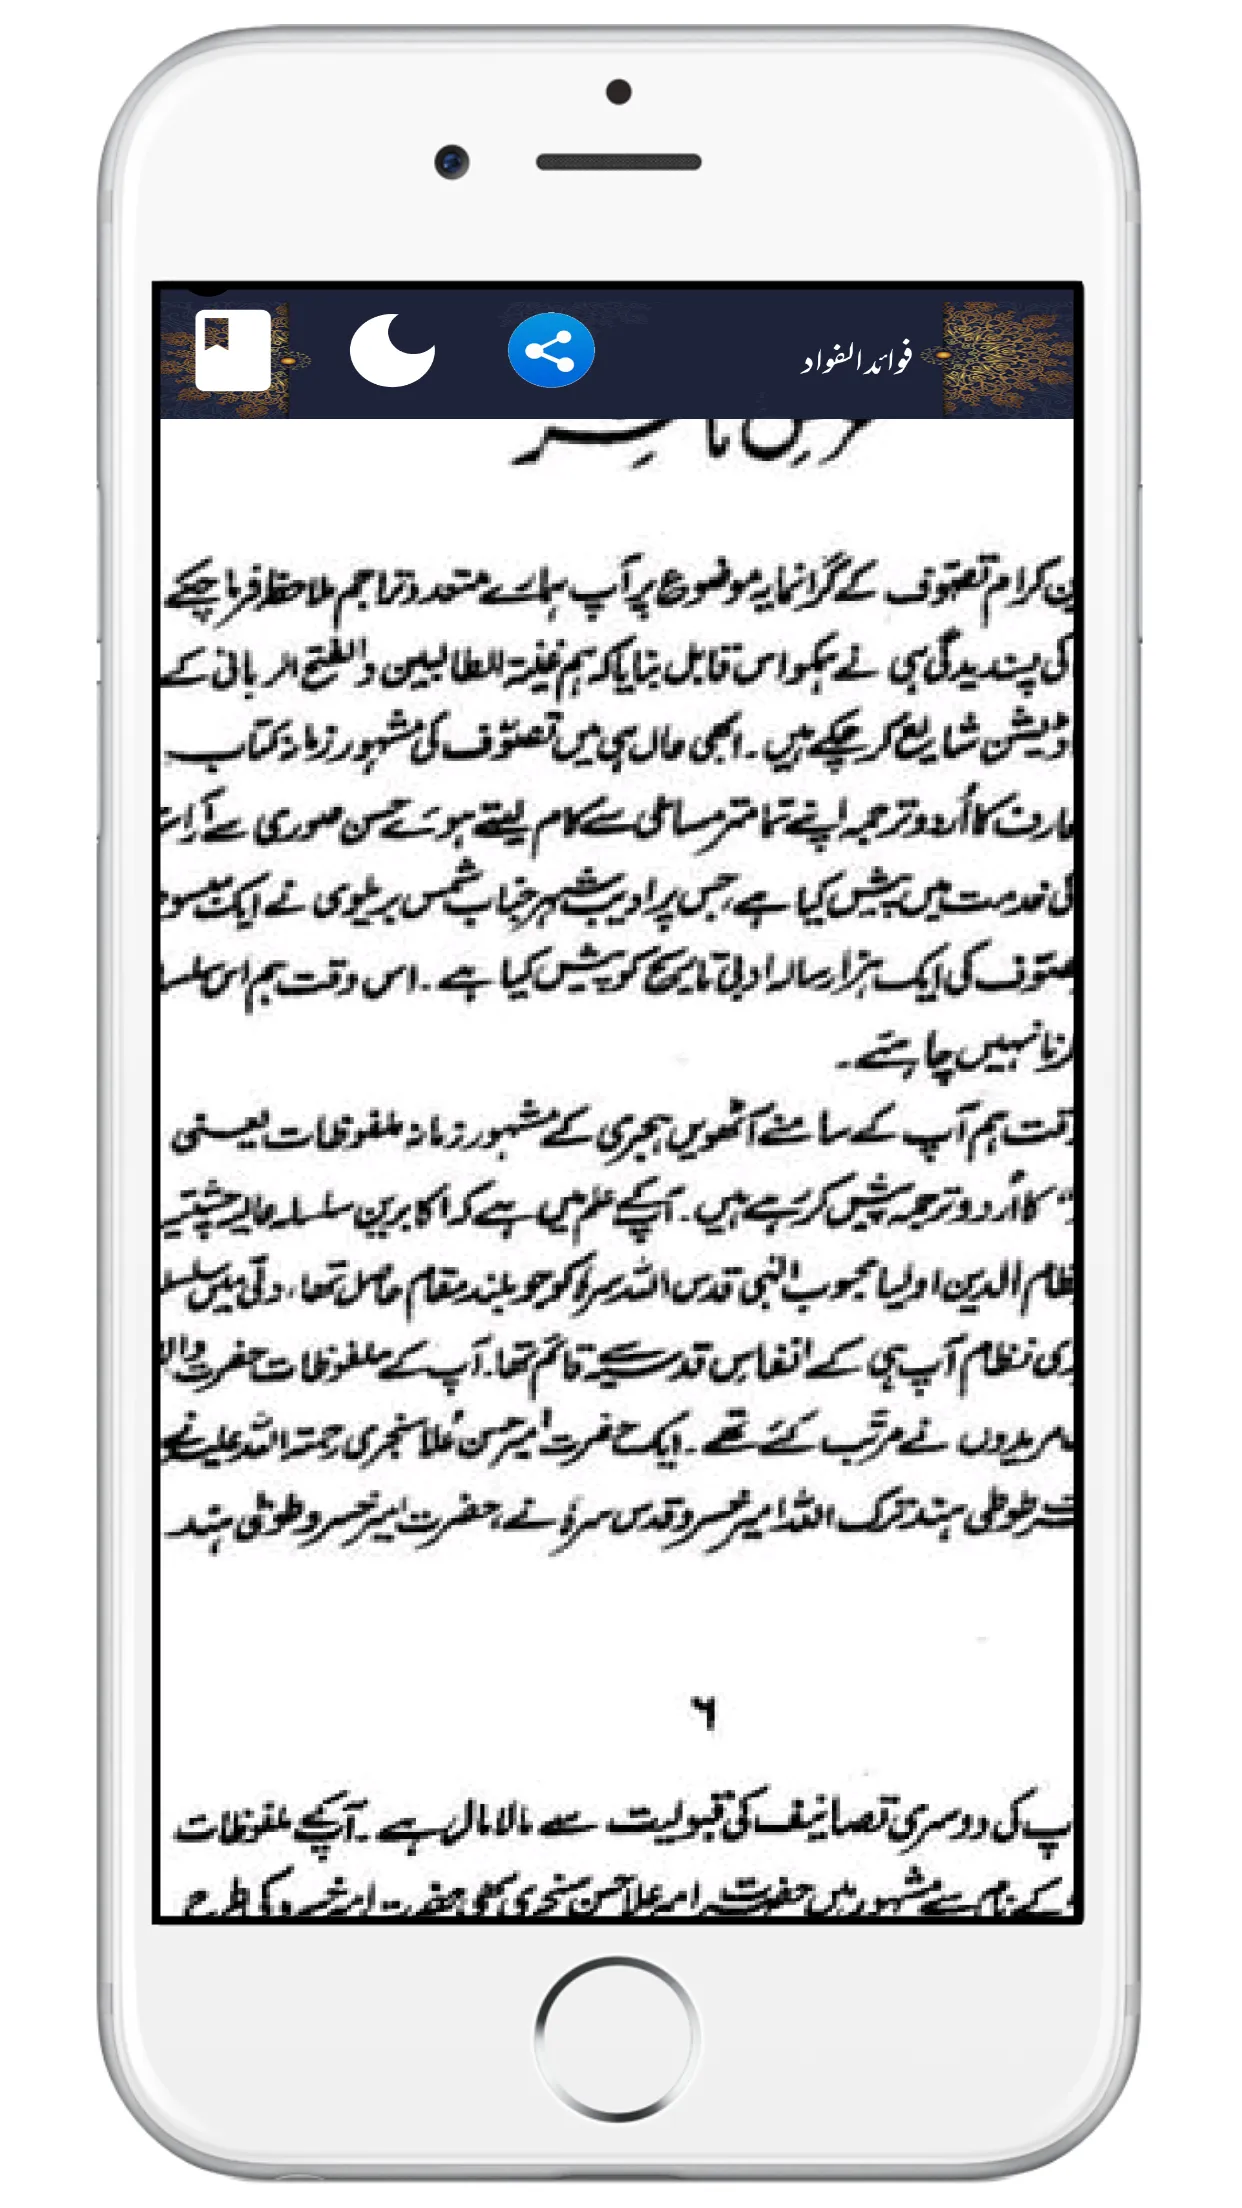 فوائد الفواد
کرام تصوّف کے گرانمایہ موضوع پر آپ ہمارے متعدد تراجم ملاحظہ فرما چکے
کی پسندیدگی ہی نے ہمکو اس قابل بنایا کہ ہم غنیۃ الطالبین و الفتح الربانی کے
شایع کر چکے ہیں ۔ ابھی حال ہی میں تصوّف کی مشہور زمانہ کتاب
کا اُردو ترجمہ اپنے تمامتر مساعی سے کام لیتے ہوئے حسن صوری سے
خدمت میں پیش کیا ہے، جس پر ادیب شہیر جناب شمس بریلوی نے ایک
کی ایک ہزار سالہ ادبی تاریخ کو پیش کیا ہے ۔ اس وقت ہم اس
نہیں چاہتے ۔
ہم آپ کے سامنے آٹھویں ہجری کے مشہور زمانہ ملفوظات یعنی
" کا اُردو ترجمہ پیش کر رہے ہیں ۔ آپکے علم میں ہے کہ اکابرین سلسلہ عالیہ چشتیہ
الدین اولیا محبوب الٰہی قدس اللہ سرہٗ کو جو بلند مقام حاصل تھا، دلّی میں
نظام آپ ہی کے انفاس قدسیہ سے قائم تھا۔ آپ کے ملفوظات حضرت
مریدوں نے مرتّب کئے تھے ۔ ایک حضرت امیر حسن علا سنجری رحمۃ اللہ علیہ نے
طوطی ہند ترک اللہ امیر خسرو قدس سرہٗ نے، حضرت امیر خسرو طوطی ہند
۶
کی دوسری تصانیف کی قبولیت سے مالا مال ہے ۔ آپکے ملفوظات
کے نام سے مشہور ہیں حضرت امیر علا حسن سنجری بھی حضرت امیر خسرو کی طرح